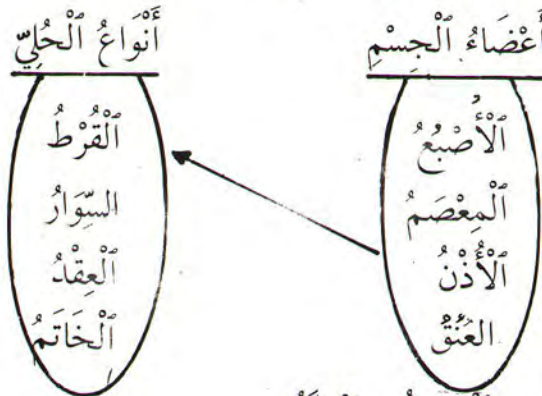 أَعْضَاءُ الْجِسْمِ
الْأُصْبُعُ
الْمِعْصَمُ
الْأُذْنُ
العُنُقُ
أَنْوَاعُ الْحُلِيِّ
الْقُرْطُ
السِّوَارُ
الْعِقْدُ
الْخَاتَمُ